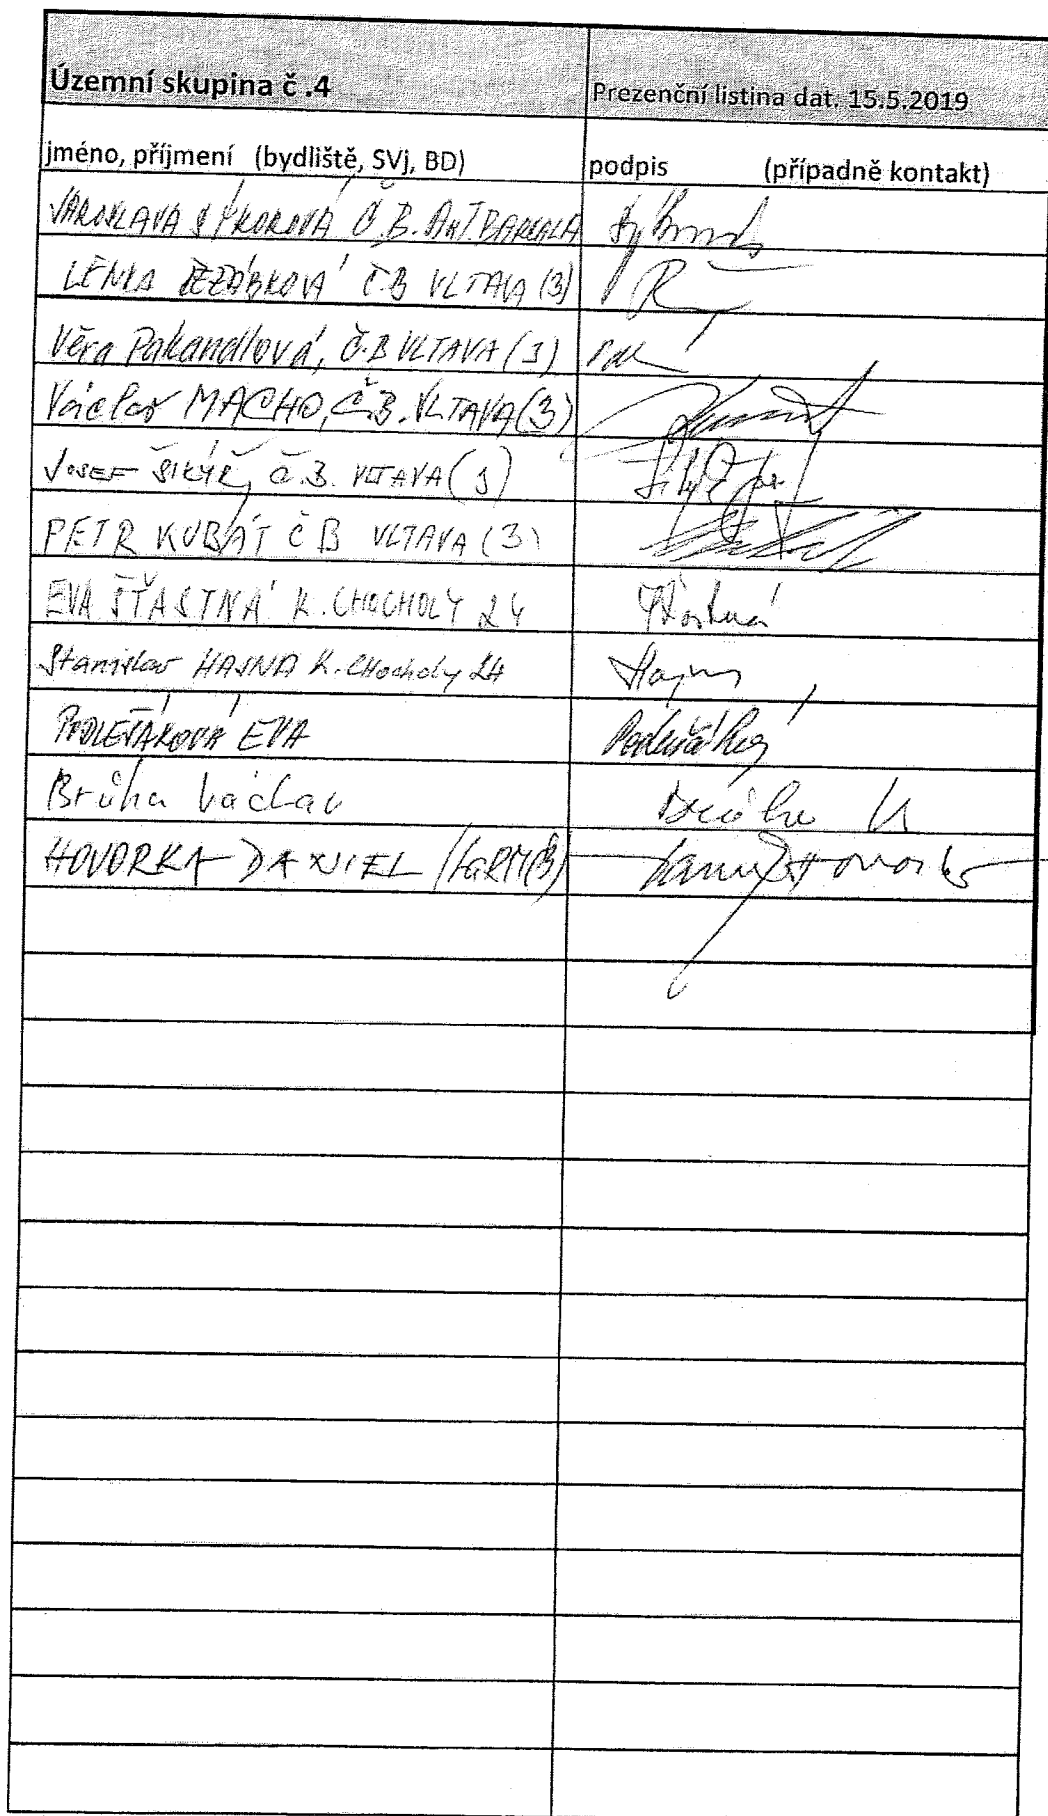 Územní skupina č .4 Prezenční listina dat. 15.5.2019
jméno, příjmení (bydliště, SVj, BD) podpis (případně kontakt)
JAROSLAVA SÝKOROVÁ Č.B. ANT. BARCALA
LENKA ČB VLTAVA (3)
Věra Pakandlová, Č.B VLTAVA (3)
Václav MACHO, Č.B. VLTAVA (3)
JOSEF ŠIKÝŘ, Č.B. VLTAVA (3)
PETR KUBÁT ČB VLTAVA (3)
EVA ŠŤASTNÁ K. CHOCHOLY 24 Šťastná
Stanislav HAJNA K. CHocholy 24
PODLEŠÁKOVÁ EVA Podlešáková
Brůha Václav Brůha V
HOVORKA DANIEL Daniel Hovorka